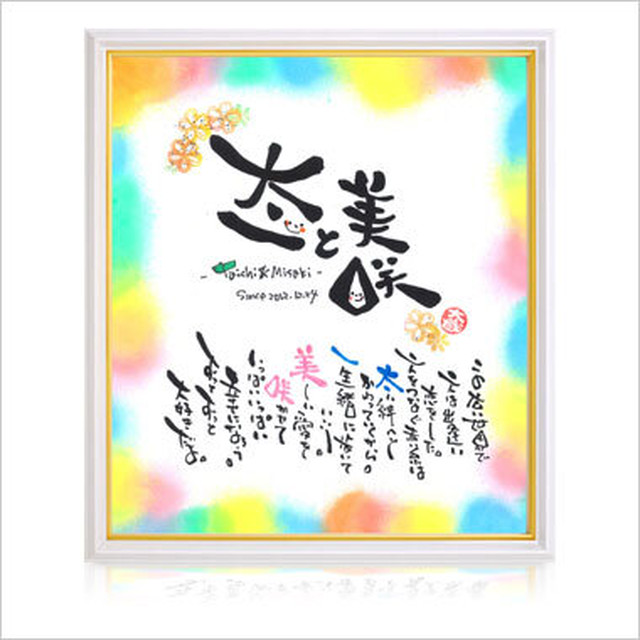 太一と美咲
- Taichi & Misaki -
Since
この広い世界で
二人は出逢い
恋をした。
二人をつなぐ赤い糸は
太い絆へと
かわっていくから。
一生一緒に歩いて
いこう。
美しい愛を
咲かせて
いっぱいいっぱい
幸せになろう。
ずっとずっと
大好きだよ。